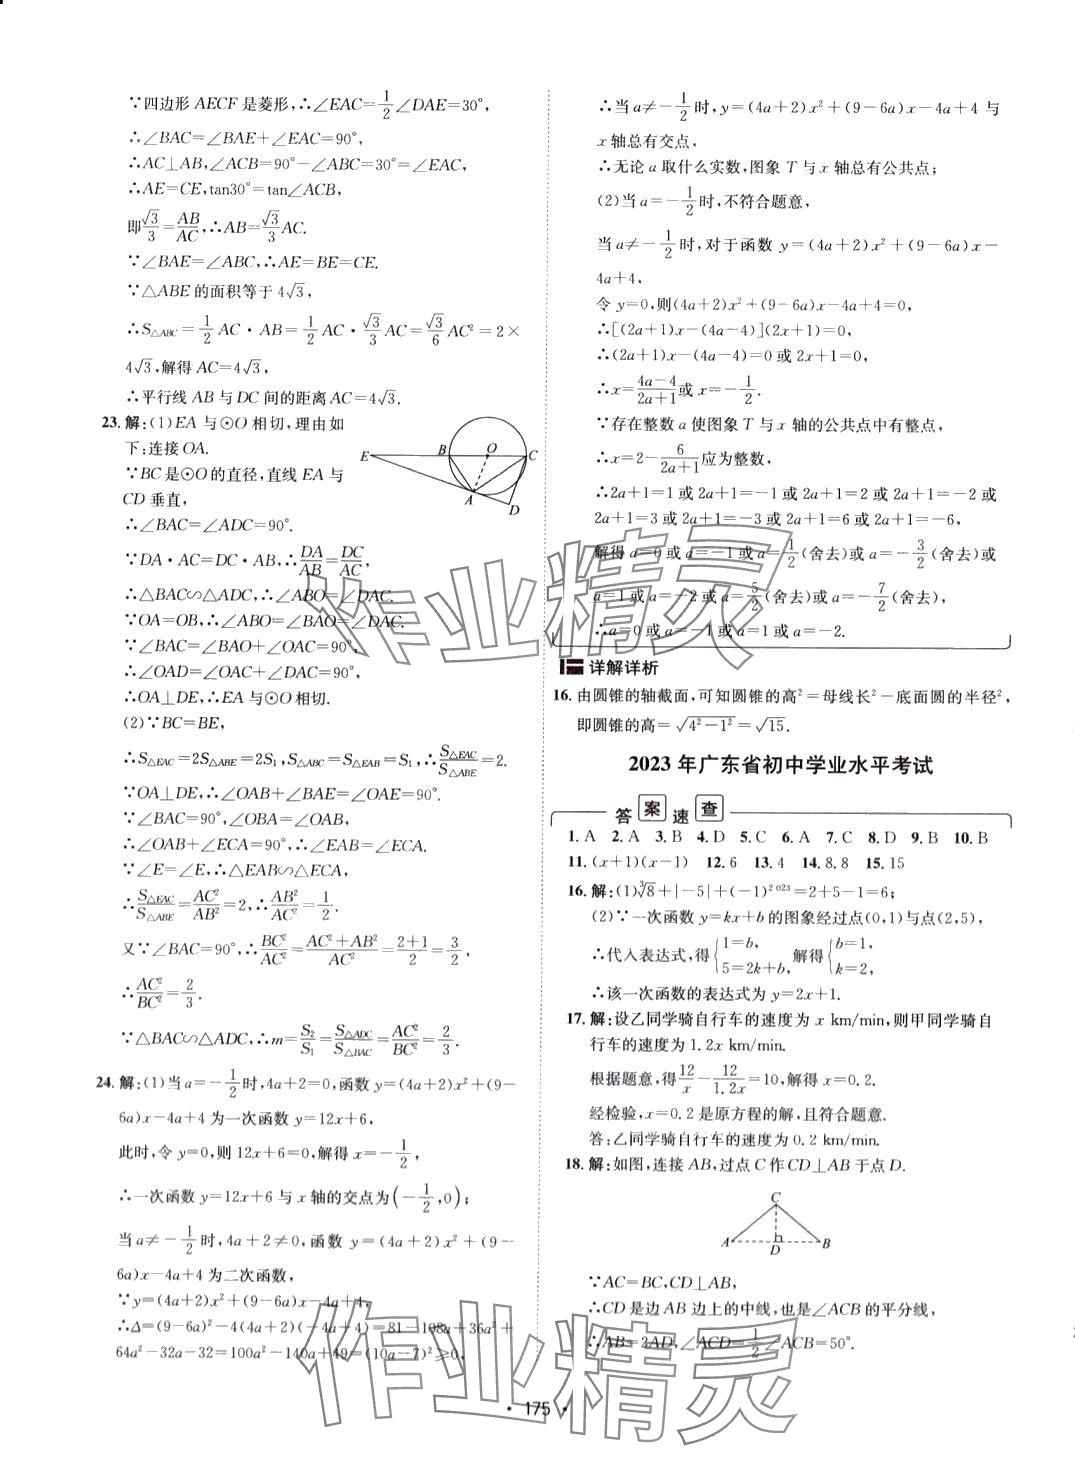 ∵四边形 AECF 是菱形,∴∠EAC=1/2∠DAE=30°,
∴∠BAC=∠BAE+∠EAC=90°,
∴AC⊥AB,∠ACB=90°-∠ABC=30°=∠EAC,
∴AE=CE,tan30°=tan∠ACB,
即√3/3=AB/AC,∴AB=√3/3 AC.
∵∠BAE=∠ABC,∴AE=BE=CE.
∵△ABE 的面积等于 4√3,
∴S△ABC=1/2 AC·AB=1/2 AC·√3/3 AC=√3/6 AC²=2×
4√3,解得 AC=4√3,
∴平行线 AB 与 DC 间的距离 AC=4√3.
23. 解:(1)EA 与⊙O 相切,理由如
下:连接 OA.
∵BC 是⊙O 的直径,直线 EA 与
CD 垂直,
∴∠BAC=∠ADC=90°.
∵DA·AC=DC·AB,∴DA/AB=DC/AC,
∴△BAC∽△ADC,∴∠ABO=∠DAC.
∵OA=OB,∴∠ABO=∠BAO=∠DAC.
∵∠BAC=∠BAO+∠OAC=90°,
∴∠OAD=∠OAC+∠DAC=90°,
∴OA⊥DE,∴EA 与⊙O 相切.
(2)∵BC=BE,
∴S△EAC=2S△ABE=2S1,S△ABC=S△EAB=S1,∴S△EAC/S△ABE=2.
∵OA⊥DE,∴∠OAB+∠BAE=∠OAE=90°.
∵∠BAC=90°,∠OBA=∠OAB,
∴∠OAB+∠ECA=90°,∴∠EAB=∠ECA.
∵∠E=∠E,∴△EAB∽△ECA,
∴S△EAC/S△ABE=AC²/AB²=2,∴AB²/AC²=1/2.
又∵∠BAC=90°,∴BC²/AC²=(AC²+AB²)/AC²=(2+1)/2=3/2,
∴AC²/BC²=2/3.
∵△BAC∽△ADC,∴m=S2/S1=S△ADC/S△BAC=AC²/BC²=2/3.
24. 解:(1)当 a=-1/2时,4a+2=0,函数 y=(4a+2)x²+(9-
6a)x-4a+4 为一次函数 y=12x+6,
此时,令 y=0,则 12x+6=0,解得 x=-1/2,
∴一次函数 y=12x+6 与 x 轴的交点为(-1/2,0);
当 a≠-1/2时,4a+2≠0,函数 y=(4a+2)x²+(9-
6a)x-4a+4 为二次函数,
∵y=(4a+2)x²+(9-6a)x-4a+4,
∴Δ=(9-6a)²-4(4a+2)(-4a+4)=81-108a+36a²+
64a²-32a-32=100a²-140a+49=(10a-7)²≥0,
E B O C A D
∴当 a≠-1/2时,y=(4a+2)x²+(9-6a)x-4a+4 与
x 轴总有交点,
∴无论 a 取什么实数,图象 T 与 x 轴总有公共点;
(2)当 a=-1/2时,不符合题意,
当 a≠-1/2时,对于函数 y=(4a+2)x²+(9-6a)x-
4a+4,
令 y=0,则(4a+2)x²+(9-6a)x-4a+4=0,
∴[(2a+1)x-(4a-4)](2x+1)=0,
∴(2a+1)x-(4a-4)=0 或 2x+1=0,
∴x=(4a-4)/(2a+1)或 x=-1/2.
∵存在整数 a 使图象 T 与 x 轴的公共点中有整点,
∴x=2-6/(2a+1)应为整数,
∴2a+1=1 或 2a+1=-1 或 2a+1=2 或 2a+1=-2 或
2a+1=3 或 2a+1=-3 或 2a+1=6 或 2a+1=-6,
解得 a=0 或 a=-1 或 a=1/2(舍去)或 a=-3/2(舍去)或
a=1 或 a=-2 或 a=5/2(舍去)或 a=-7/2(舍去),
∴a=0 或 a=-1 或 a=1 或 a=-2.
详解详析
16. 由圆锥的轴截面,可知圆锥的高²=母线长²-底面圆的半径²,
即圆锥的高=√(4²-1²)=√15.
2023 年广东省初中学业水平考试
答案速查
1. A 2. A 3. B 4. D 5. C 6. A 7. C 8. D 9. B 10. B
11. (x+1)(x-1) 12. 6 13. 4 14. 8.8 15. 15
16. 解:(1)∛8+|-5|+(-1)²⁰²³=2+5-1=6;
(2)∵一次函数 y=kx+b 的图象经过点(0,1)与点(2,5),
∴代入表达式,得{1=b, 5=2k+b, 解得{b=1, k=2,
∴该一次函数的表达式为 y=2x+1.
17. 解:设乙同学骑自行车的速度为 x km/min,则甲同学骑自
行车的速度为 1.2x km/min.
根据题意,得12/x-12/1.2x=10,解得 x=0.2.
经检验,x=0.2 是原方程的解,且符合题意.
答:乙同学骑自行车的速度为 0.2 km/min.
18. 解:如图,连接 AB,过点 C 作 CD⊥AB 于点 D.
C A D B
∵AC=BC,CD⊥AB,
∴CD 是边 AB 边上的中线,也是∠ACB 的平分线,
∴AB=2AD,∠ACD=1/2∠ACB=50°.
·175·
作业精灵
作业精灵